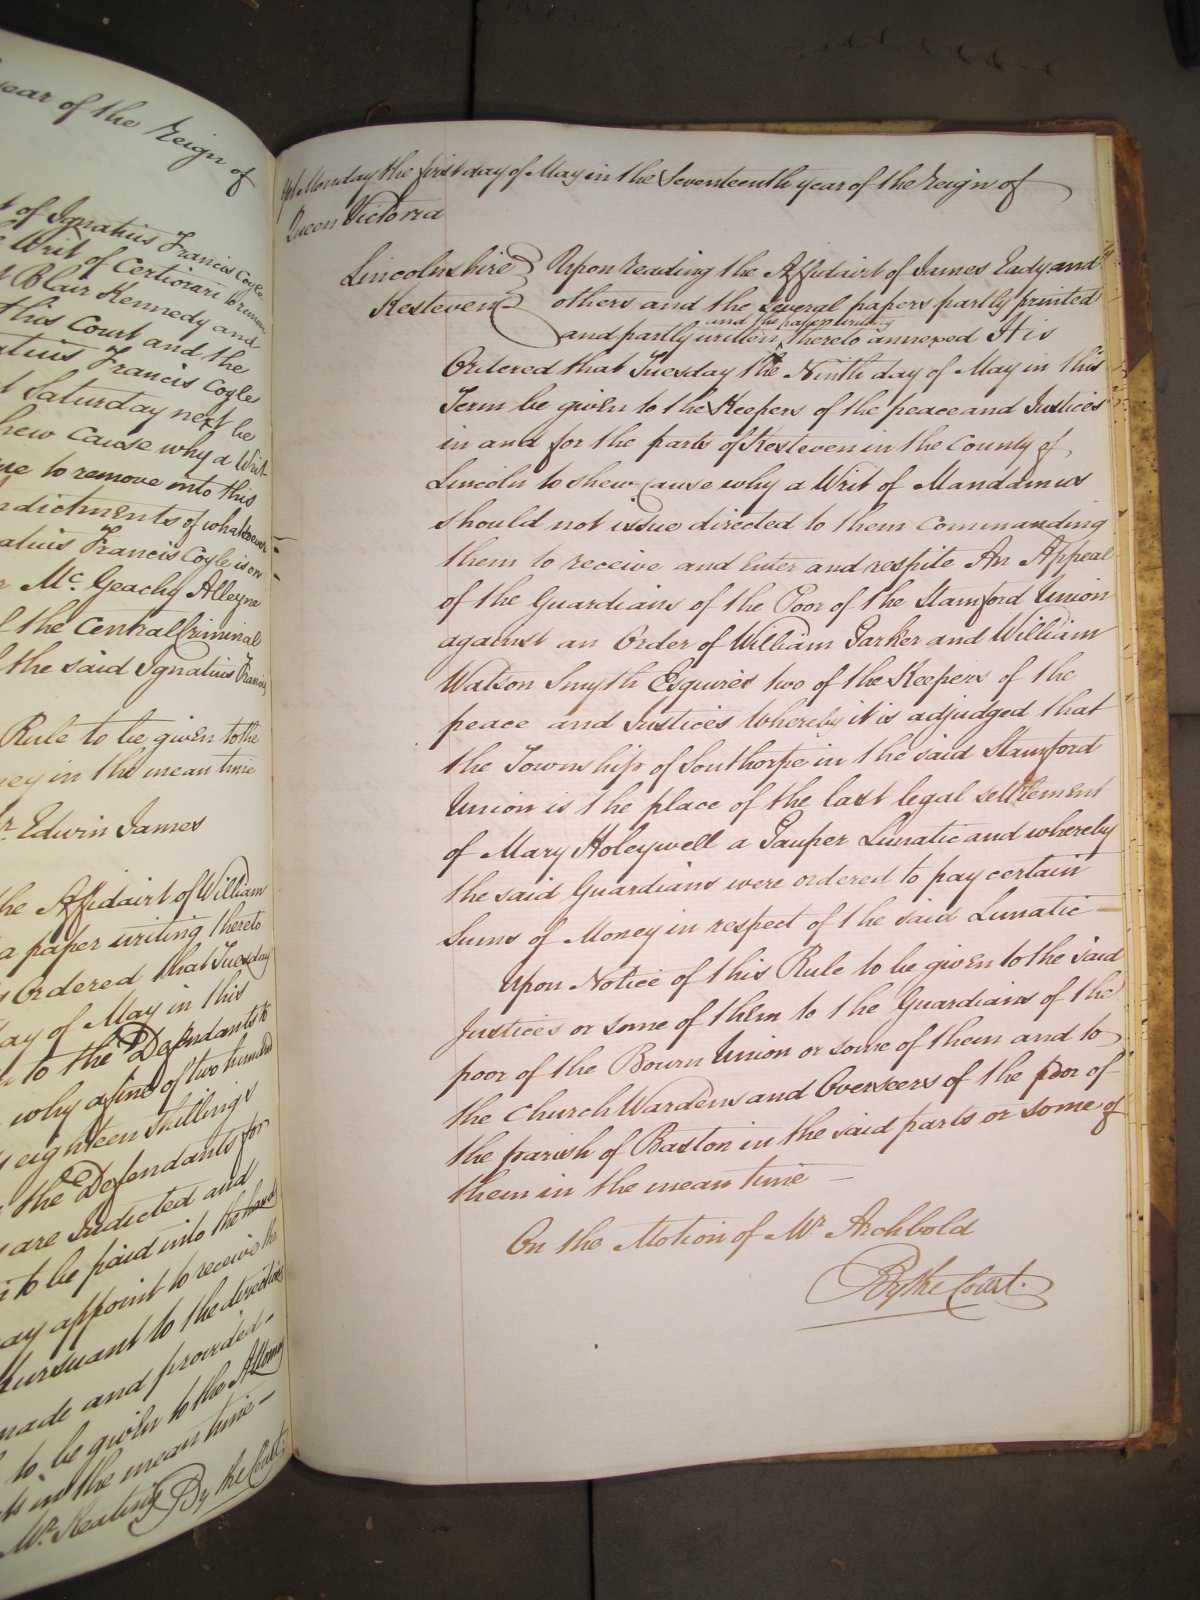 year of the Reign of
of Ignatius Francis Coyle
Writ of Certiorari to remove
Blair Kennedy and
this Court and the
Francis Coyle
Saturday next be
shew Cause why a Writ
to remove into this
Indictments of whatsoever
Ignatius Francis Coyle is on
Mc. Geachy Alleyne
the Central Criminal
the said Ignatius Francis
Rule to be given to the
in the mean time
Mr Edwin James
the Affidavit of William
a paper writing thereto
Ordered that Tuesday
day of May in this
to the Defendants to
why a fine of two hundred
eighteen shillings
the Defendants for
are Indicted and
to be paid into the hands
may appoint to receive the
pursuant to the directions
made and provided-
to be given to the Attorney
in the mean time-
Mr. Keating By the Court.
Monday the first day of May in the Seventeenth year of the Reign of
Queen Victoria
Lincolnshire Upon reading the Affidavit of James Eady and
Kesteven others and the several papers partly printed
and the paper writing
and partly written thereto annexed It is
Ordered that Tuesday the Ninth day of May in this
Term be given to the Keepers of the peace and Justices
in and for the parts of Kesteven in the County of
Lincoln to shew Cause why a Writ of Mandamus
should not issue directed to them Commanding
them to receive and enter and respite An Appeal
of the Guardians of the Poor of the Stamford Union
against an Order of William Parker and William
Watson Smyth Esquires two of the Keepers of the
peace and Justices whereby it is adjudged that
the Township of Southorpe in the said Stamford
Union is the place of the last legal settlement
of Mary Holeywell a Pauper Lunatic and whereby
the said Guardians were ordered to pay certain
Sums of Money in respect of the said Lunatic —
Upon Notice of this Rule to be given to the said
Justices or some of them to the Guardians of the
poor of the Bourn Union or some of them and to
the Church Wardens and Overseers of the poor of
the parish of Baston in the said parts or some of
them in the mean time —
On the Motion of Mr Archbold
By the Court.